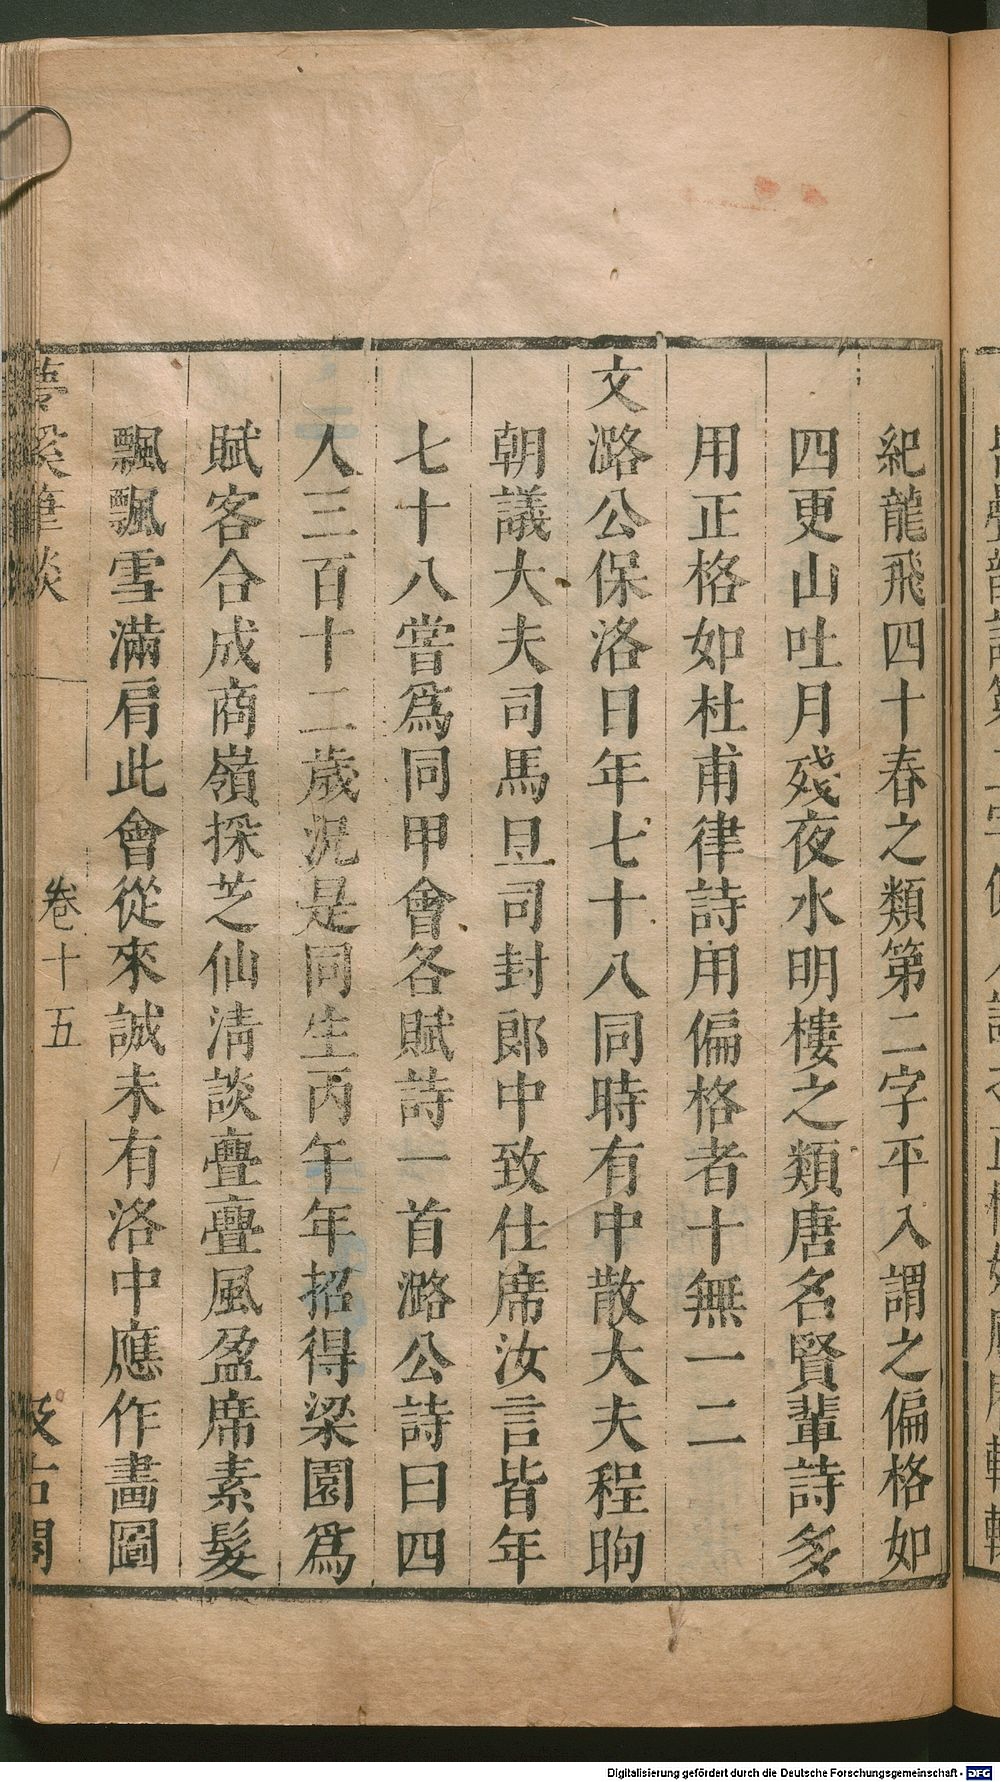 紀龍飛四十春之類第二字平入謂之偏格如
四更山吐月殘夜水明樓之類唐名賢輩詩多
用正格如杜甫律詩用偏格者十無一二
文潞公保洛日年七十八同時有中散大夫程昫
朝議大夫司馬旦司封郎中致仕席汝言皆年
七十八嘗爲同甲會各賦詩一首潞公詩曰四
人三百十二歲況是同生丙午年招得梁園爲
賦客合成商嶺採芝仙清談亹亹風盈席素髮
飄飄雪滿肩此會從來誠未有洛中應作畫圖
夢溪筆談 卷十五 汲古閣
Digitalisierung gefördert durch die Deutsche Forschungsgemeinschaft - DFG